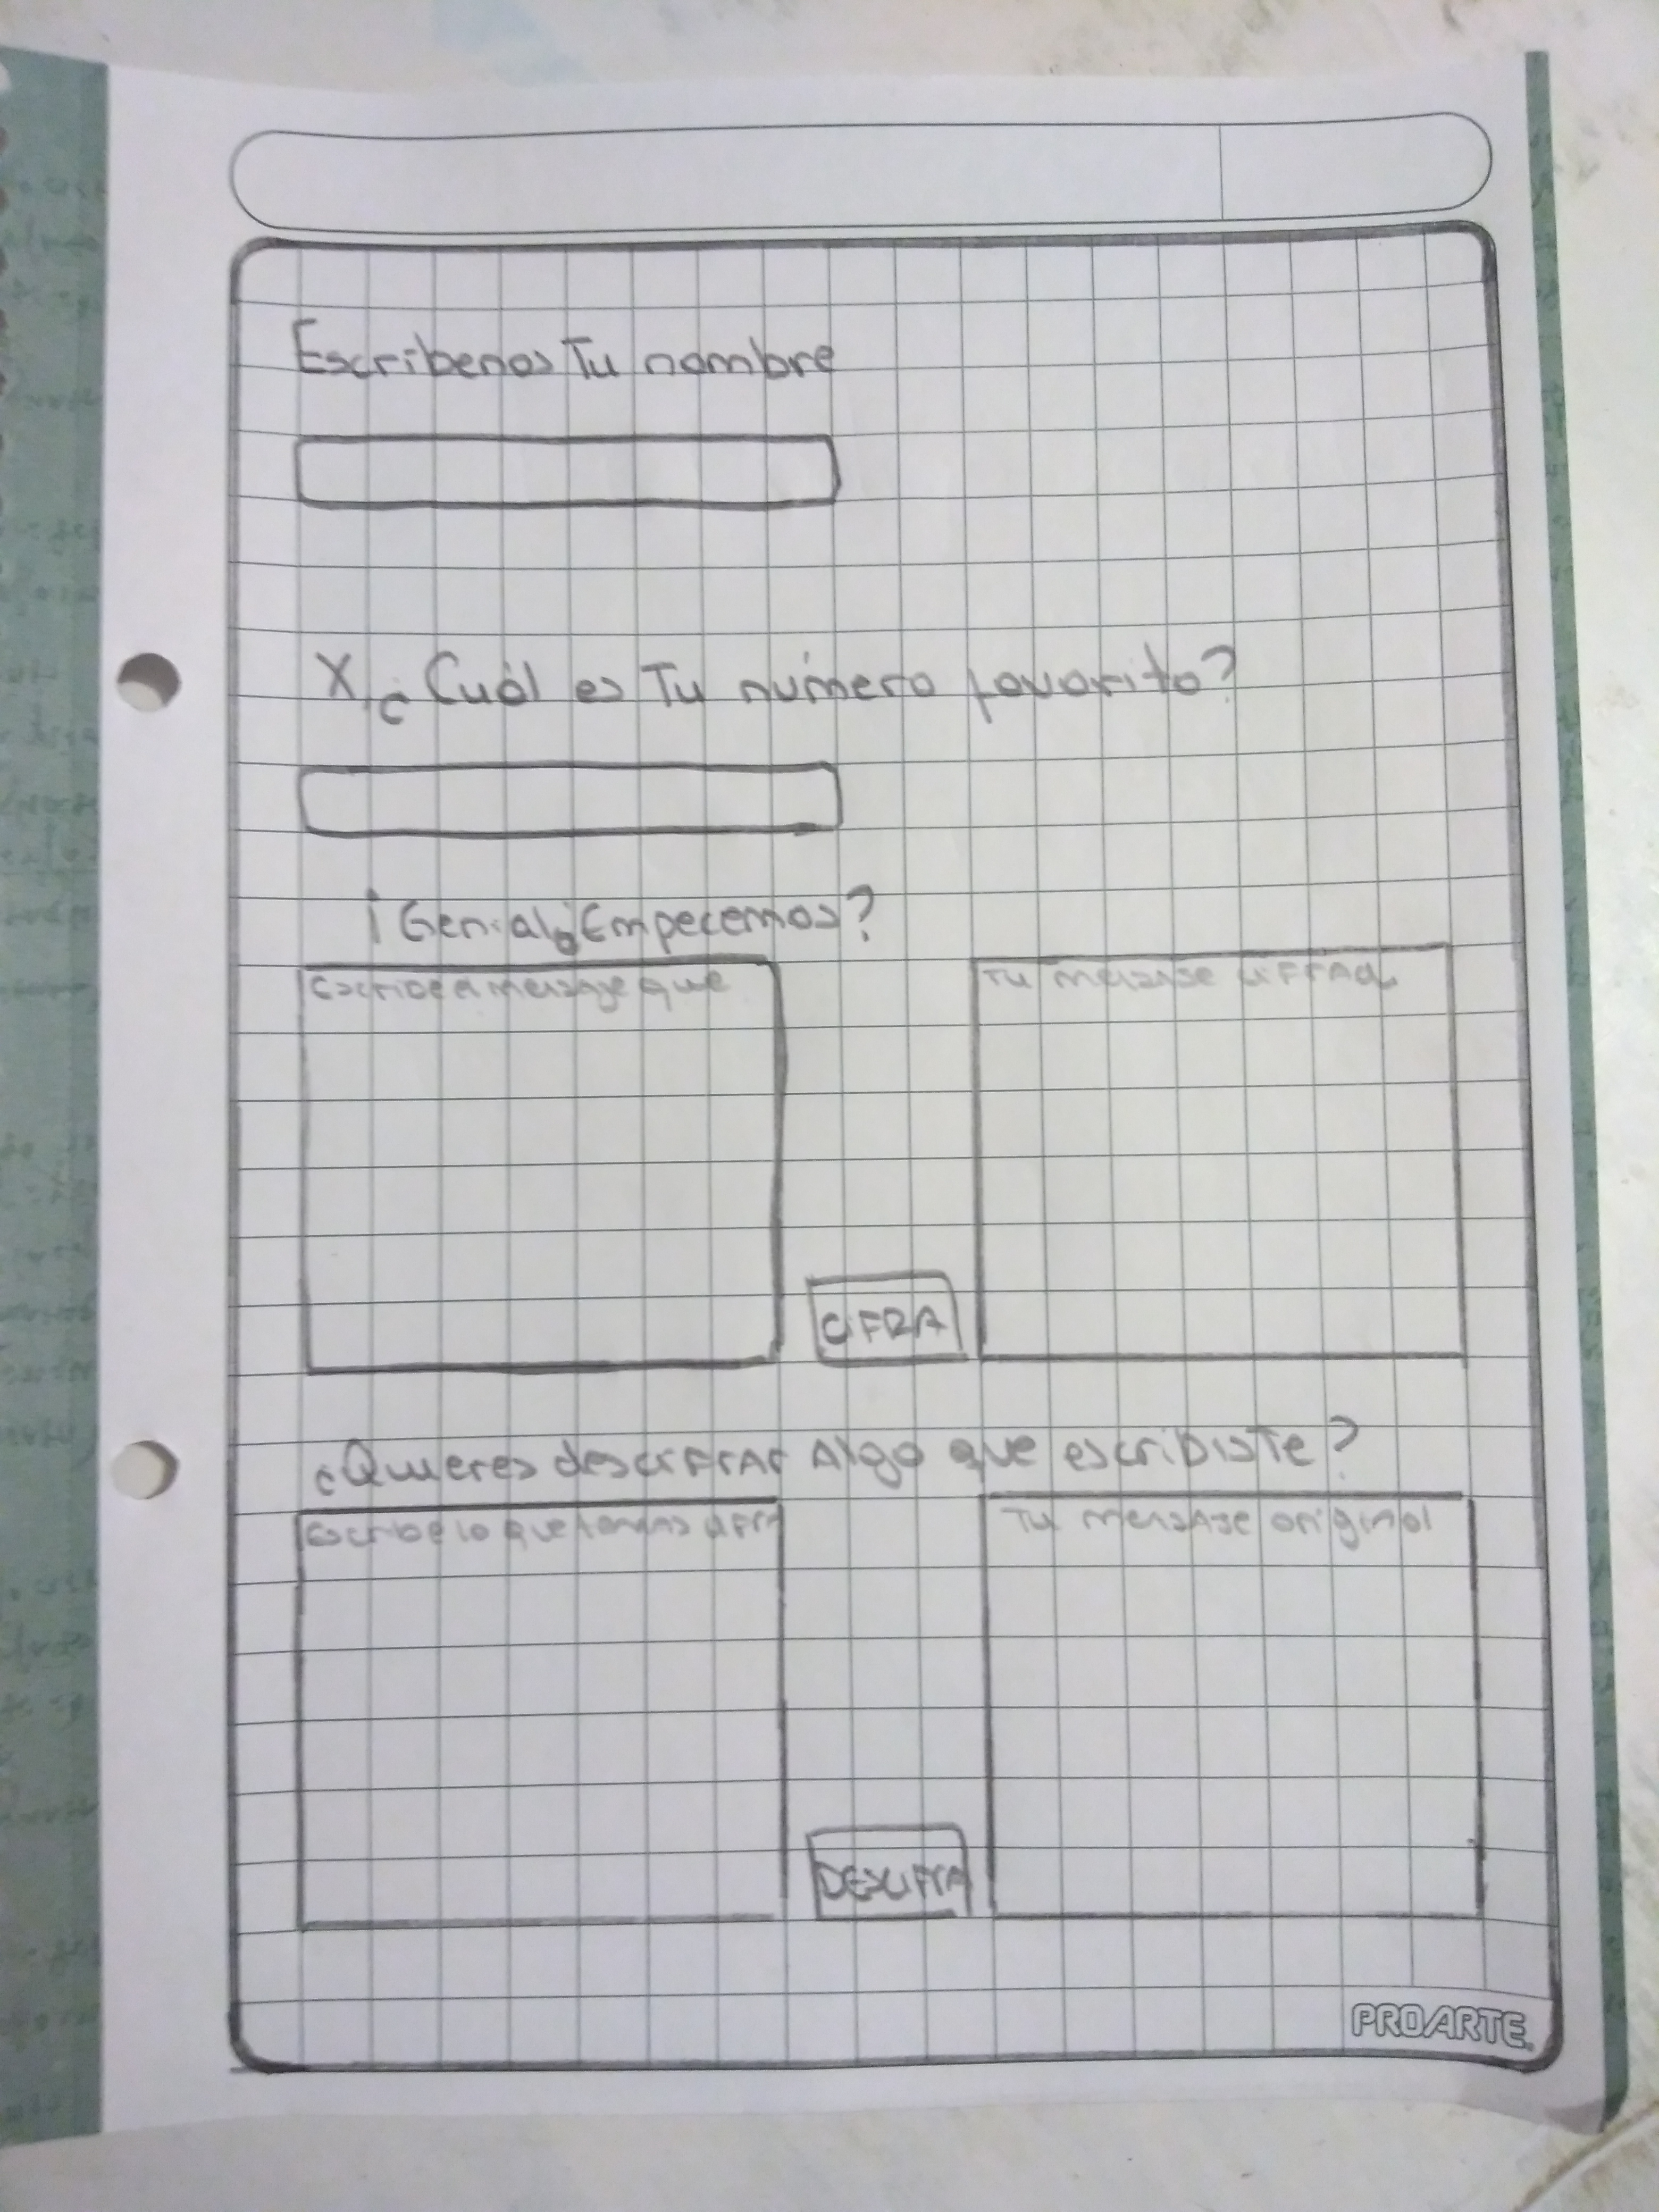 Escribenos Tu nombre
X ¿Cuál es Tu número favorito?
¡Genial, Empecemos?
Escribe el mensaje que
Tu mensaje cifrado
CIFRA
¿Quieres descifrar Algo que escribiste?
Escribe lo que
Tu mensaje original
DESCIFRA
PROARTE.